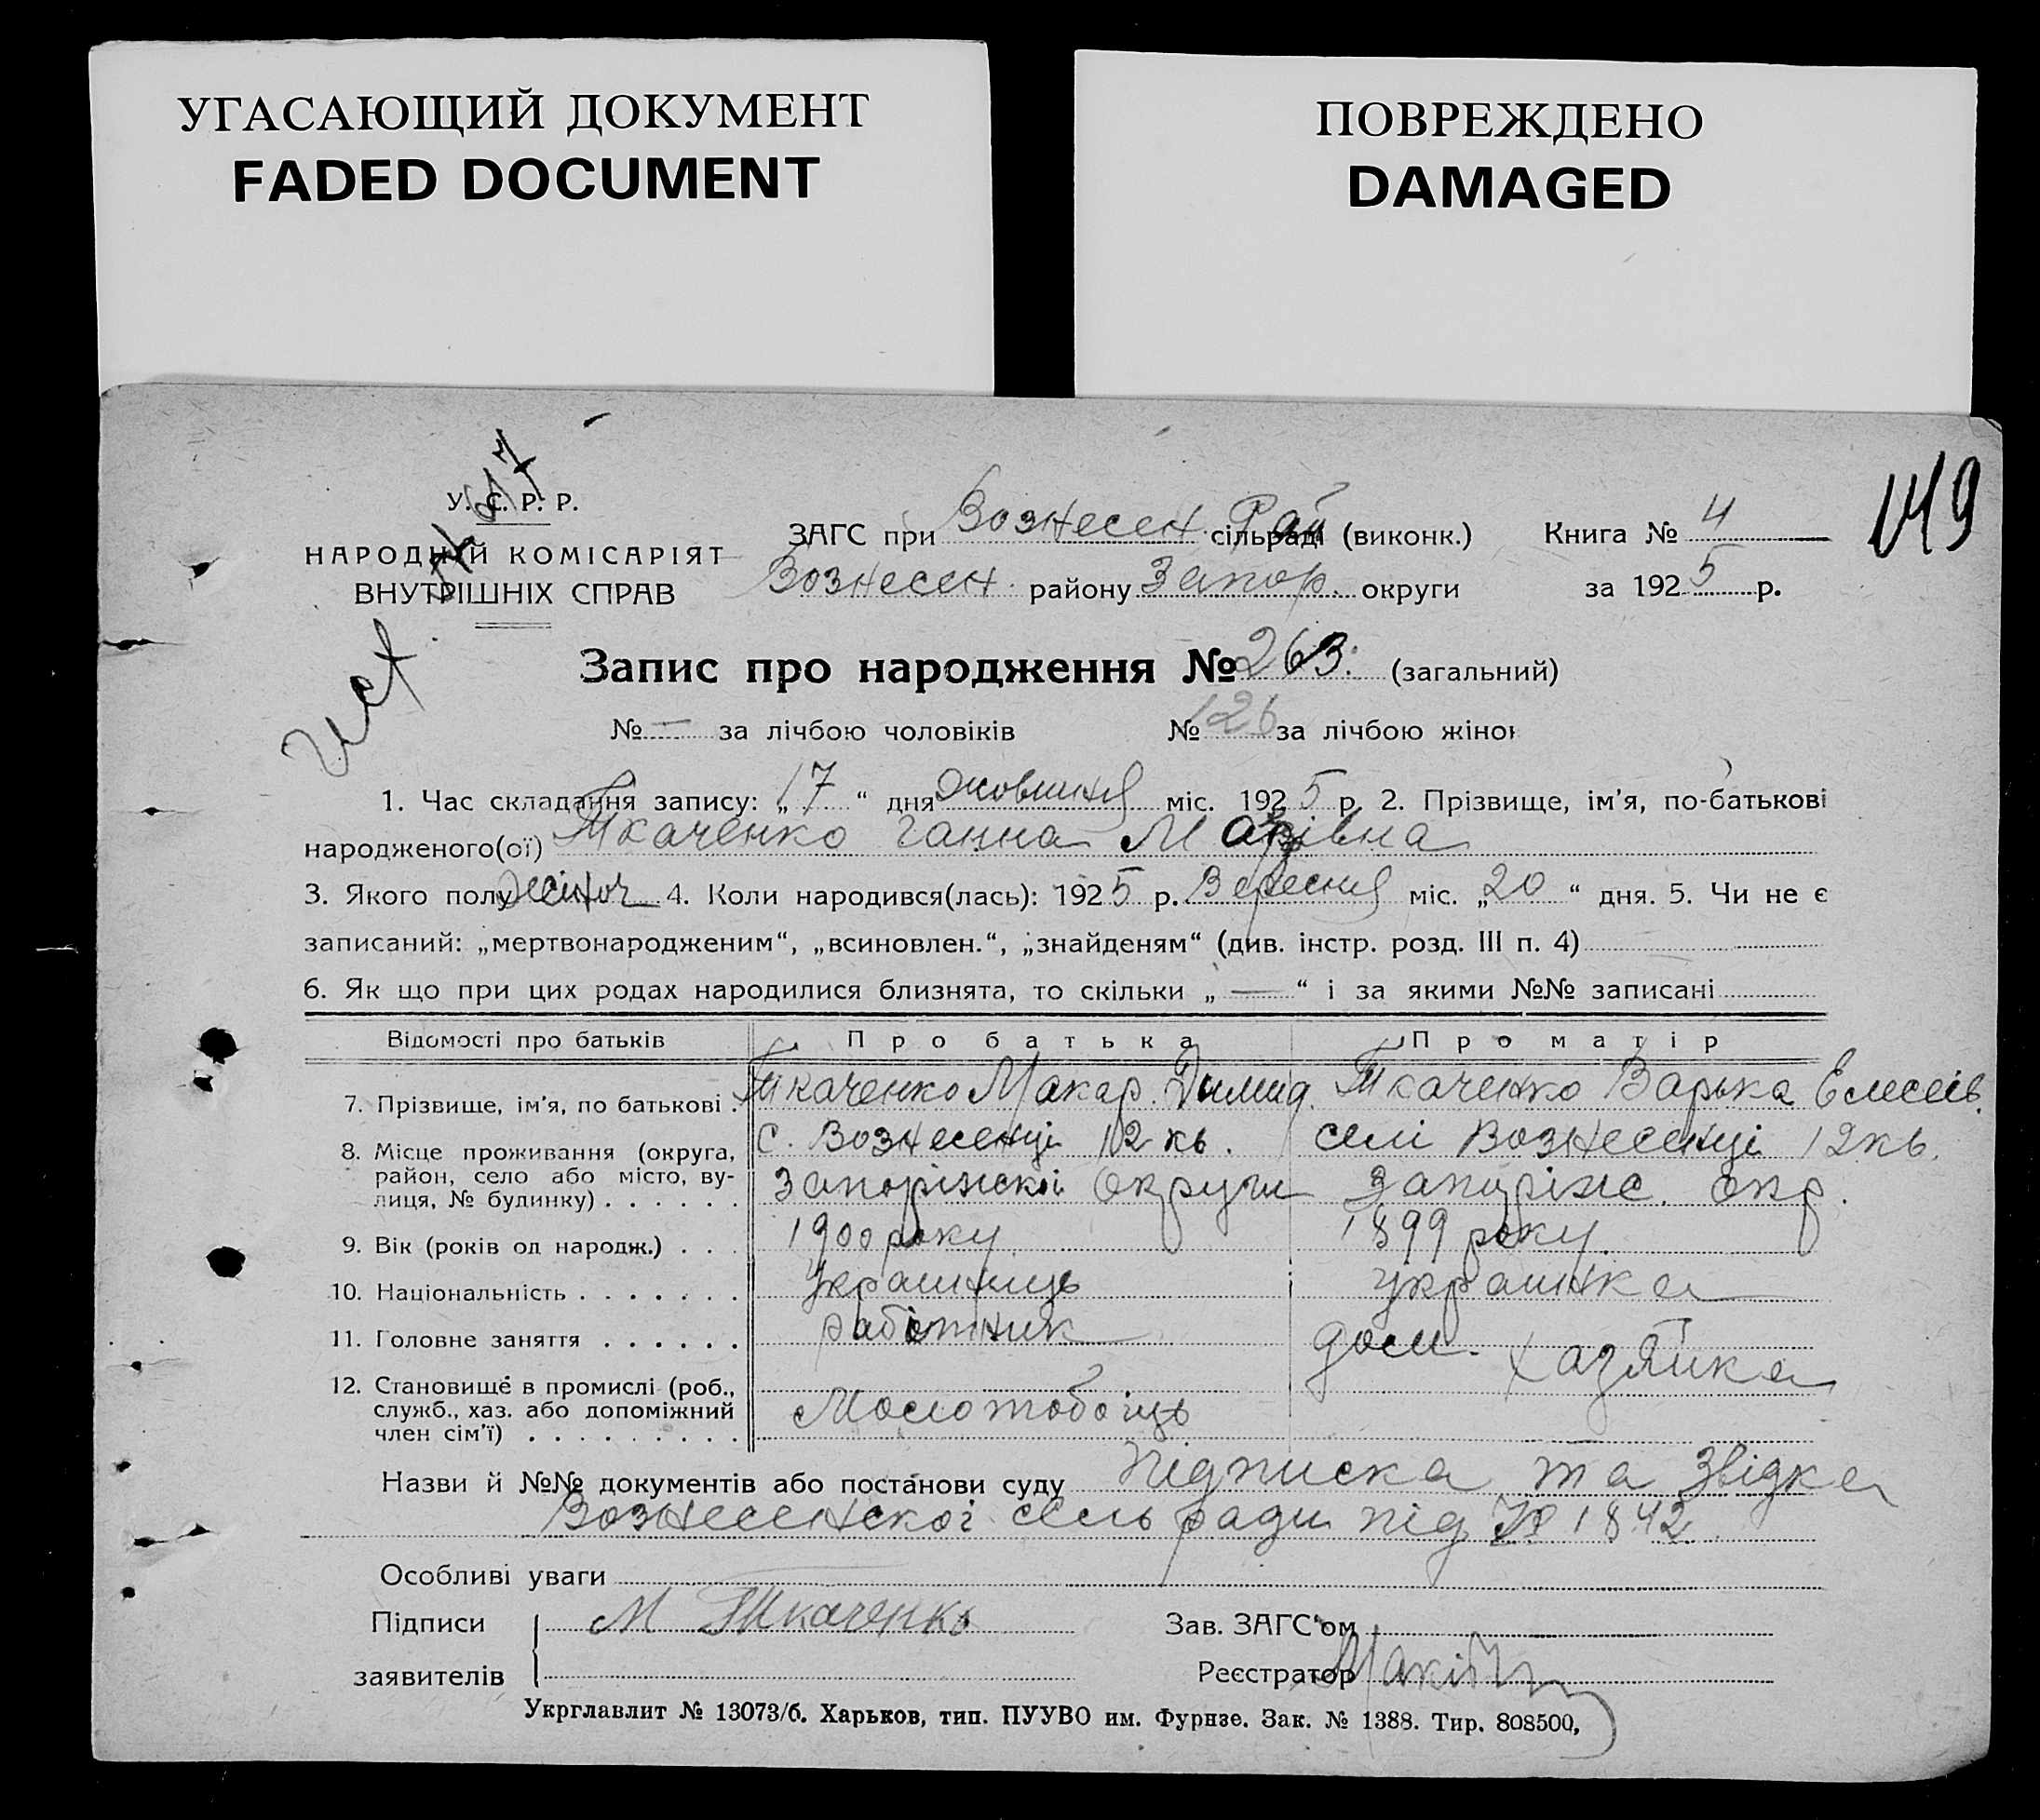 УГАСАЮЩИЙ ДОКУМЕНТ
FADED DOCUMENT
ПОВРЕЖДЕНО
DAMAGED
149
У. С. Р. Р.
НАРОДНІЙ КОМІСАРІЯТ
ВНУТРІШНІХ СПРАВ
ЗАГС при Вознесен. Рай сільраді (виконк.) Книга № 4
Вознесен. району Запор. округи за 1925 р.
Запис про народження № 263. (загальний)
№ — за лічбою чоловіків № 126 за лічбою жінок
1. Час складання запису: „17“ дня жовтня міс. 1925 р. 2. Прізвище, ім’я, по-батькові
народженого(ої) Ткаченко Ганна Марівна
3. Якого полу жіноч 4. Коли народився(лась): 1925 р. Вересня міс. „20“ дня. 5. Чи не є
записаний: „мертвонародженим“, „всиновлен.“, „знайденям“ (див. інстр. розд. III п. 4)
6. Як що при цих родах народилися близнята, то скільки „—“ і за якими №№ записані
Відомості про батьків Про батька Про матір
7. Прізвище, ім’я, по батькові . Ткаченко Макар. Димид. Ткаченко Варька Елесеів.
8. Місце проживання (округа, с. Вознесенці 12 кв. селі Вознесенці 12 кв.
район, село або місто, ву-
лиця, № будинку) . . . . . . Запоріжскої Округи Запоріж. окр.
9. Вік (років од народж.) . . . 1900 року. 1899 року.
10. Національність . . . . . . . Украинць украинка
11. Головне заняття . . . . . . работник дом. хазяйка
12. Становище в промислі (роб.,
служб., хаз. або допоміжний Молотобоіць
член сім’ї) . . . . . . . . .
Назви й №№ документів або постанови суду Підписка та Звідка
Вознесенскоі сель ради під № 1842
Особливі уваги
Підписи М Ткаченко Зав. ЗАГС‘ом
заявителів Реєстратор
Укрглавлит № 13073/б. Харьков, тип. ПУУВО им. Фрунзе. Зак. № 1388. Тир. 808500,